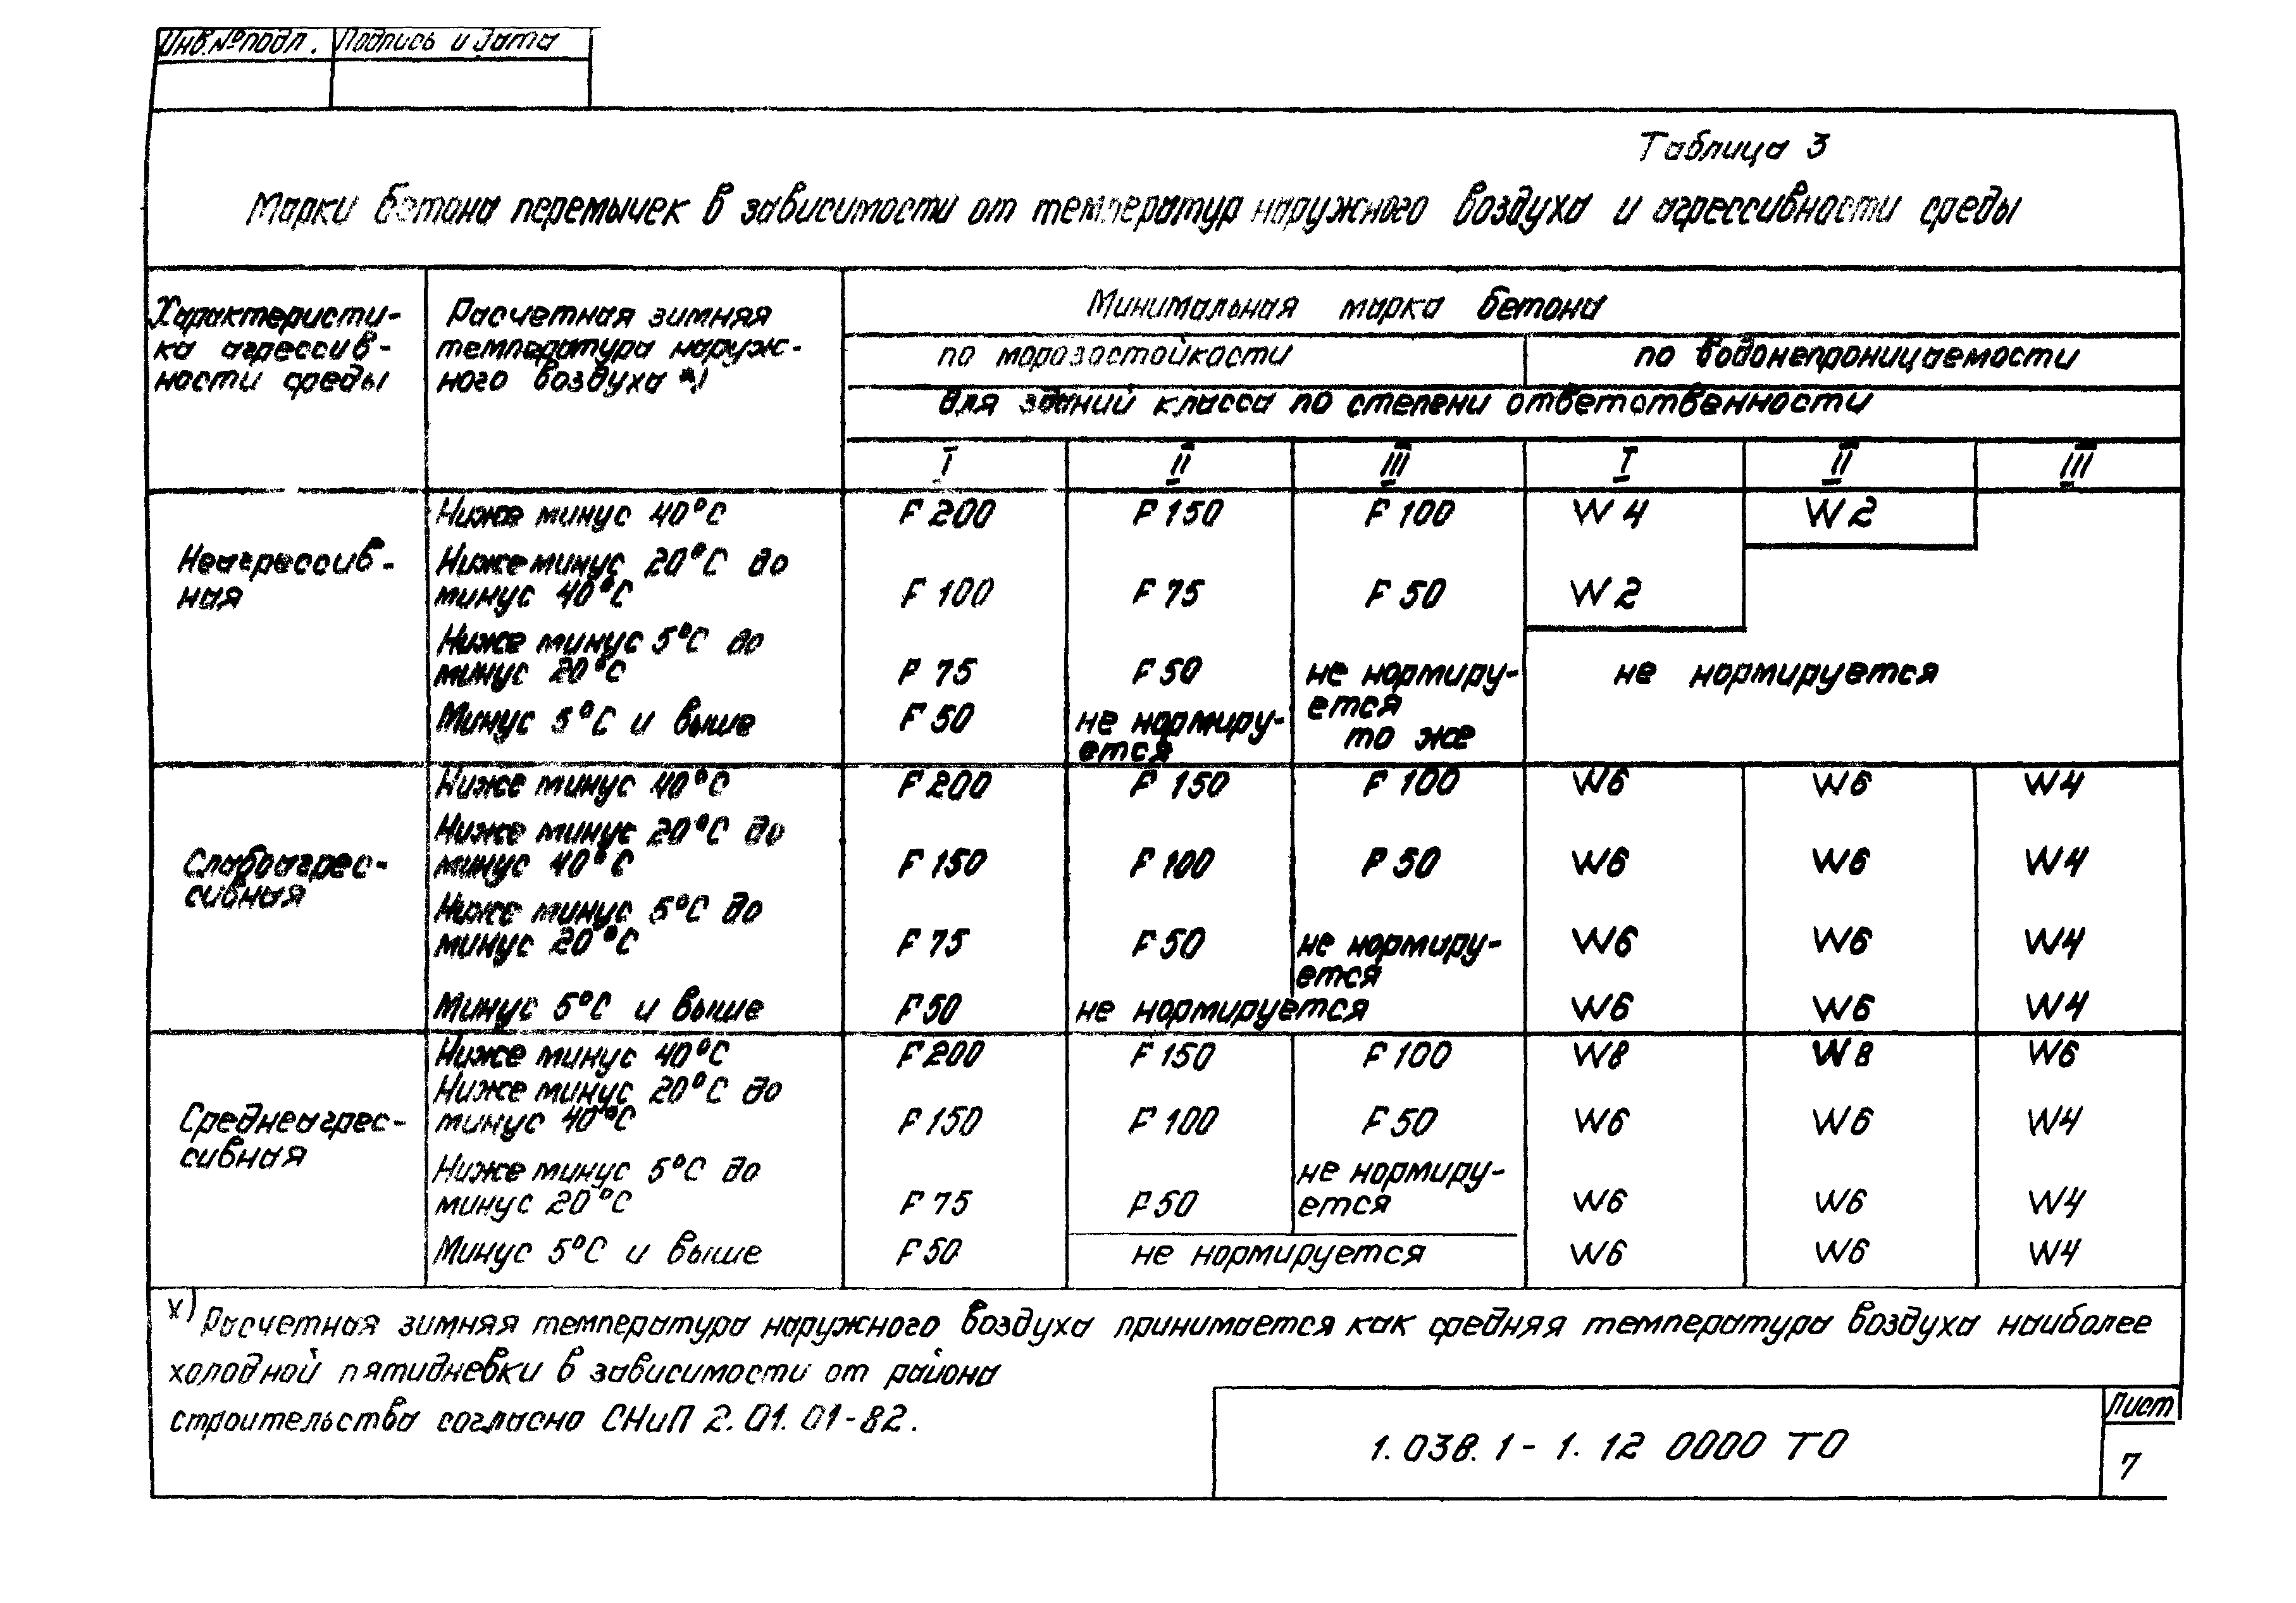 Инв.№ подл. Подпись и дата
Таблица 3
Марки бетона перемычек в зависимости от температур наружного воздуха и агрессивности среды
Характеристи- Расчетная зимняя Минимальная марка бетона
ка агрессив- температура наруж- по морозостойкости по водонепроницаемости
ности среды ного воздуха *)
для зданий класса по степени ответственности
I II III I II III
Ниже минус 40°С F 200 F 150 F 100 W 4 W 2
Неагрессив- Ниже минус 20°С до
ная минус 40°С F 100 F 75 F 50 W 2
Ниже минус 5°С до
минус 20°С F 75 F 50 не нормиру- не нормируется
ется
Минус 5°С и выше F 50 не нормиру- то же
ется
Ниже минус 40°С F 200 F 150 F 100 W6 W6 W4
Ниже минус 20°С до
Слабоагрес- минус 40°С F 150 F 100 F 50 W6 W6 W4
сивная
Ниже минус 5°С до
минус 20°С F 75 F 50 не нормиру- W6 W6 W4
ется
Минус 5°С и выше F 50 не нормируется W6 W6 W4
Ниже минус 40°С F 200 F 150 F 100 W8 W8 W6
Ниже минус 20°С до
Среднеагрес- минус 40°С F 150 F 100 F 50 W6 W6 W4
сивная
Ниже минус 5°С до не нормиру-
минус 20°С F 75 F 50 ется W6 W6 W4
Минус 5°С и выше F 50 не нормируется W6 W6 W4
х) Расчетная зимняя температура наружного воздуха принимается как средняя температура воздуха наиболее
холодной пятидневки в зависимости от района
строительства согласно СНиП 2.01.01-82.
1.038.1-1.12 0000 ТО
Лист
7